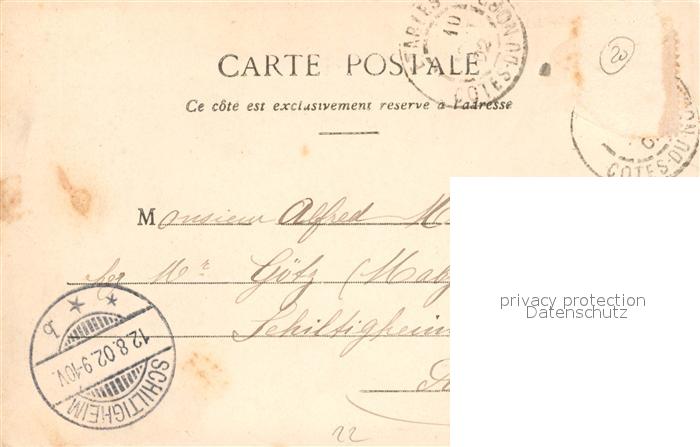 COTES-DU-NORD
10
02
20
CARTE POSTALE
COTES-DU-NOR
Ce côte est exclusivement reserve a l'adresse
Monsieur Alfred M
Mr. Götz (
Schiltigheim
privacy protection
Datenschutz
* * b
12.8.02.9-10V.
SCHILTIGHEIM
22